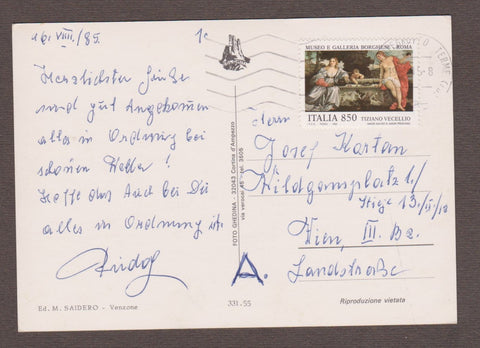 16. VIII. /85.
Herzlichster Grüße
und gut Angekommen
alles in Ordnung bei
schönen Wetter !
Hoffe das Auch bei Dir
alles in Ordnung ist.
Rudolf
Ed. M. SAIDERO - Venzone
FOTO GHEDINA - 32043 Cortina d'Ampezzo
via verocai 45 tel. 3606
331.55
MUSEO E GALLERIA BORGHESE - ROMA
ITALIA 850
TIZIANO VECELLIO
TERME
5-8
Herrn
Josef Kartan
Wildgansplatz 1/
Stiege 13/II/10
Wien, III. Bz.
Landstraße
A.
Riproduzione vietata